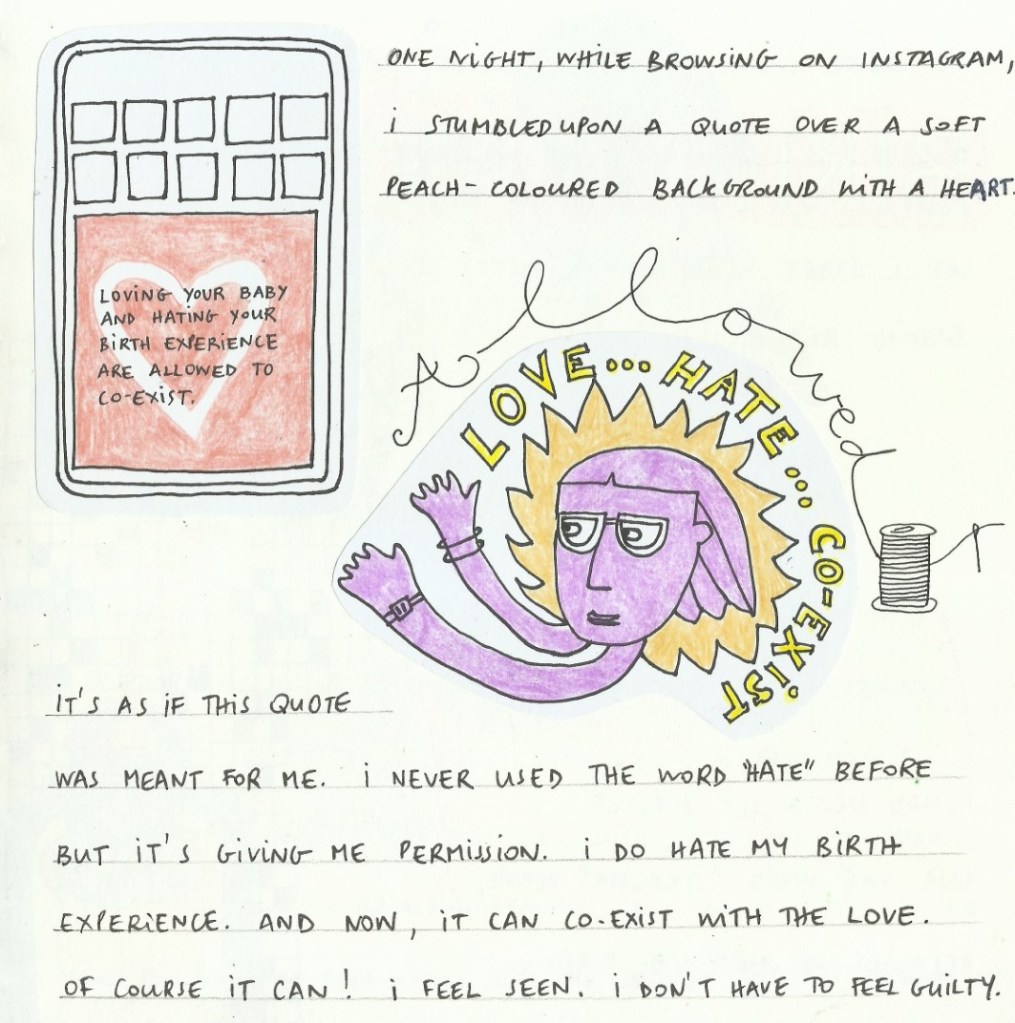 ONE NIGHT, WHILE BROWSING ON INSTAGRAM,
I STUMBLED UPON A QUOTE OVER A SOFT
PEACH-COLOURED BACKGROUND WITH A HEART.
LOVING YOUR BABY
AND HATING YOUR
BIRTH EXPERIENCE
ARE ALLOWED TO
CO-EXIST.
Allowed
LOVE... HATE... CO-EXIST
IT'S AS IF THIS QUOTE
WAS MEANT FOR ME. I NEVER USED THE WORD "HATE" BEFORE
BUT IT'S GIVING ME PERMISSION. I DO HATE MY BIRTH
EXPERIENCE. AND NOW, IT CAN CO-EXIST WITH THE LOVE.
OF COURSE IT CAN! I FEEL SEEN. I DON'T HAVE TO FEEL GUILTY.